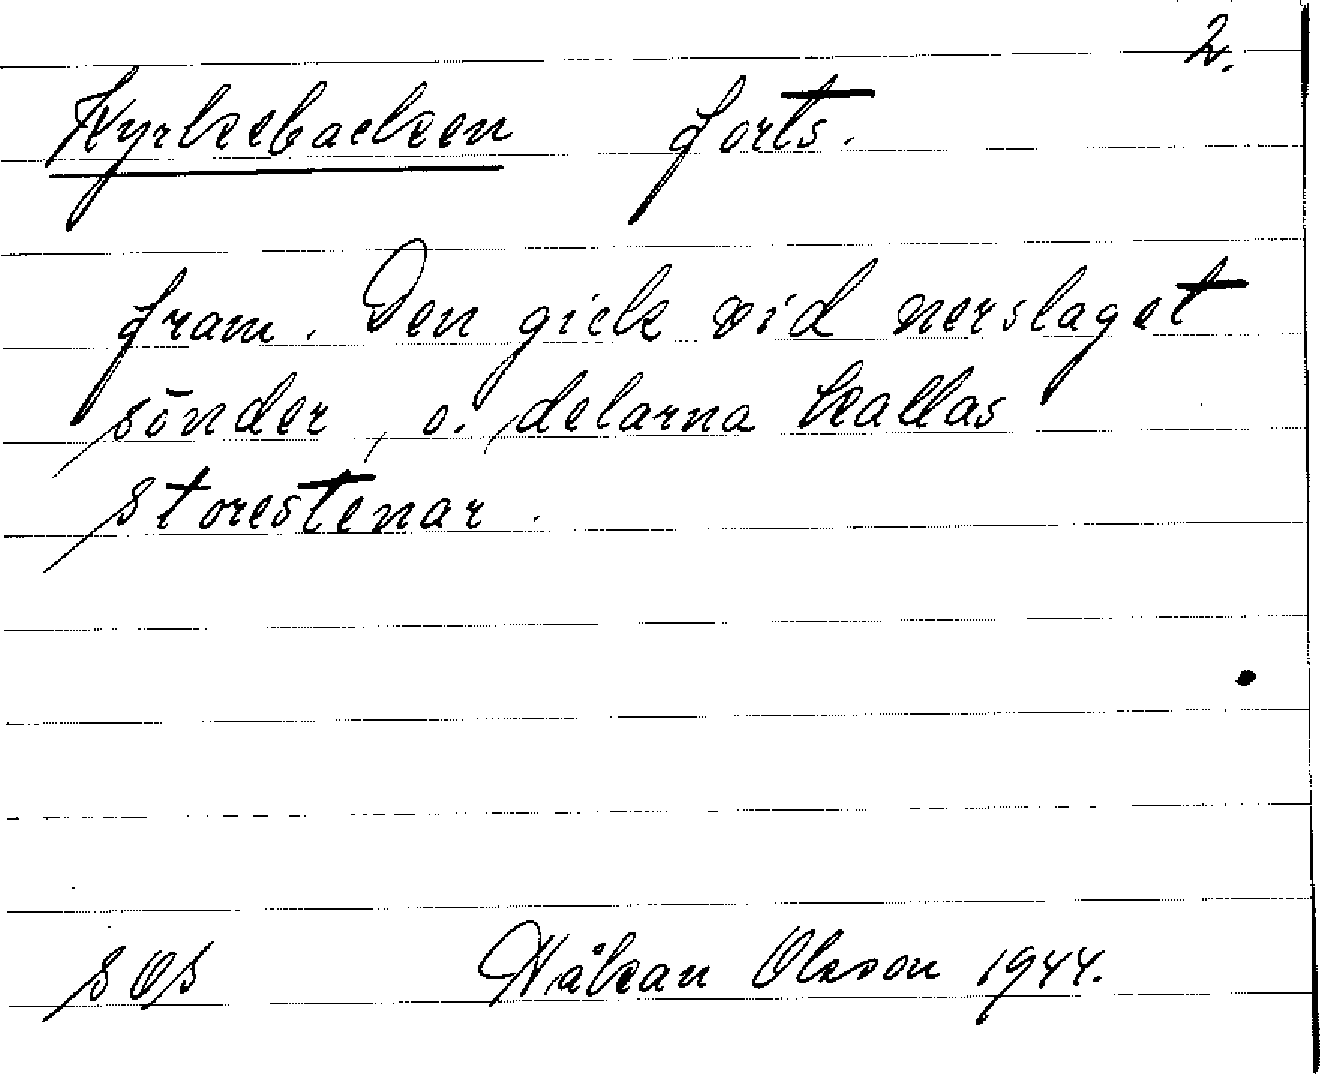 2.
Kyrkebacken forts.
fram. Den gick vid nerslaget
sönder, o. delarna kallas
storestenar.
SOS Håkan Olsson 1944.